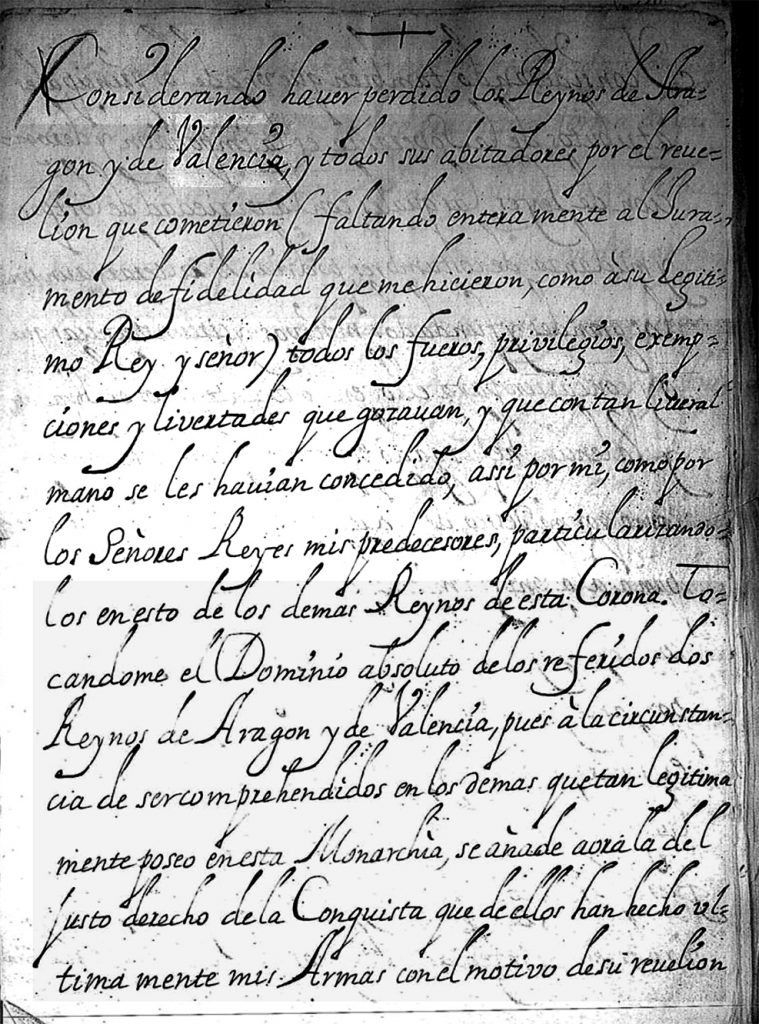 Considerando haver perdido los Reynos de Ara-
gon y de Valencia, y todos sus abitadores por el reve-
lion que cometieron (faltando entera mente al Jura-
mento de fidelidad que me hicieron, como à su legiti-
mo Rey y señor) todos los fueros, privilegios, exemp-
ciones y livertades que gozauan, y que con tan liveral
mano se les hauian concedido, assi por mi, como por
los Señores Reyes mis predecesores, particularizando-
los en esto de los demas Reynos de esta Corona. To-
candome el Dominio absoluto de los referidos dos
Reynos de Aragon y de Valencia, pues à la circunstan-
cia de ser comprehendidos en los demas que tan legitima
mente poseo en esta Monarchia, se añade aora la del
justo derecho de la Conquista que de ellos han hecho vl-
tima mente mis Armas con el motivo de su reuelion